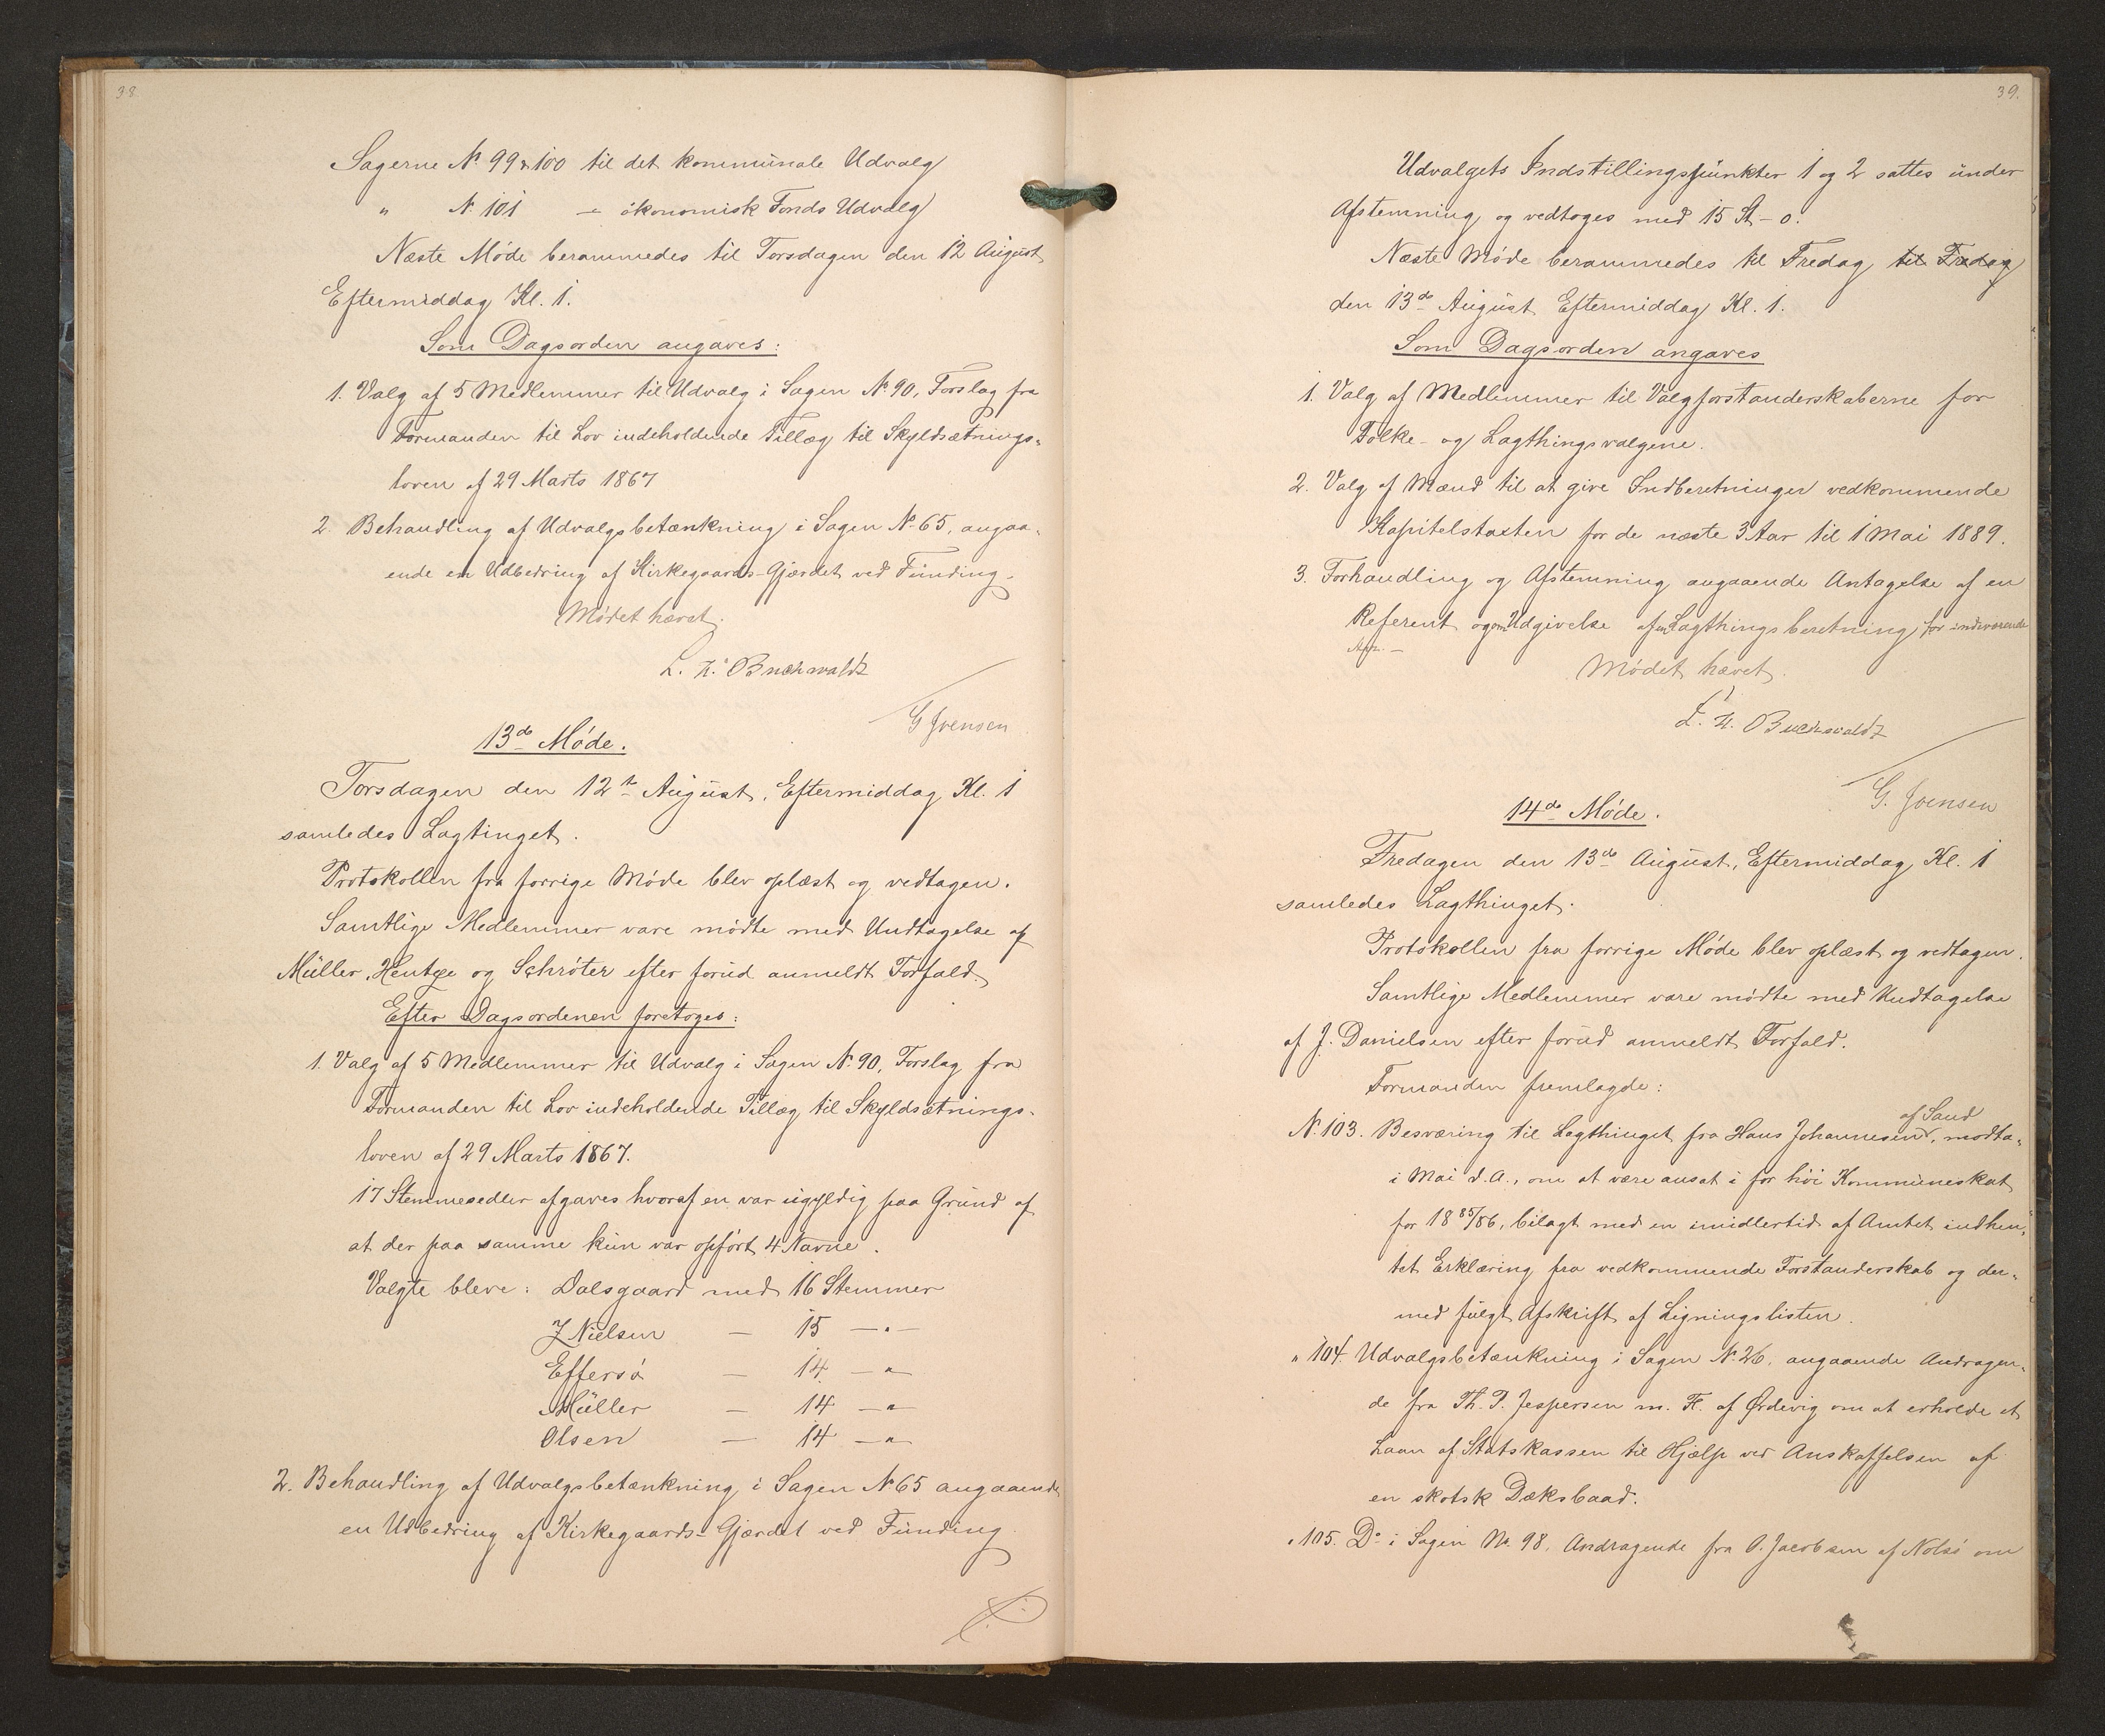 38.
Sagerne N. 99 & 100 til det kommunale Udvalg
" N. 101 — økonomisk Fonds Udvalg
Næste Møde berammedes til Torsdagen den 12 August
Eftermiddag Kl. 1.
Som Dagsorden angaves:
1. Valg af 5 Medlemmer til Udvalg i Sagen N. 90, Forslag fra
Formanden til Lov indeholdende Tillæg til Skyldsætnings-
loven af 29 Marts 1867
2. Behandling af Udvalgsbetænkning i Sagen N. 65, angaa-
ende en Udbedring af Kirkegaards-Gjærdet ved Funding.
Mødet hævet.
L. H. Buchwaldt
G Joensen
13de Møde.
Torsdagen den 12te August, Eftermiddag Kl. 1
samledes Lagtinget.
Protokollen fra forrige Møde blev oplæst og vedtagen.
Samtlige Medlemmer vare mødte med Undtagelse af
Müller, Hentze og Schrøter efter forud anmeldt Forfald.
Efter Dagsordenen foretoges:
1. Valg af 5 Medlemmer til Udvalg i Sagen N. 90, Forslag fra
Formanden til Lov indeholdende Tillæg til Skyldsætnings-
loven af 29 Marts 1867.
17 Stemmesedler afgaves hvoraf en var ugyldig paa Grund af
at der paa samme kun var opført 4 Navne.
Valgte bleve: Dalsgaard med 16 Stemmer
J Nielsen — 15 — " —
Effersö — 14 — "
Müller — 14 — "
Olsen — 14 — "
2. Behandling af Udvalgsbetænkning i Sagen N. 65 angaaende
en Udbedring af Kirkegaards-Gjærdet ved Funding
39.
Udvalgets Indstillingspunkter 1 og 2 sattes under
Afstemning og vedtoges med 15 St - 0.
Næste Møde berammedes til Fredag til Fredag
den 13de August Eftermiddag Kl. 1.
Som Dagsorden angaves
1. Valg af Medlemmer til Valgforstanderskaberne for
Folke- og Lagthingsvalgene.
2. Valg af Mænd til at give Indberetninger vedkommende
Kapitelstaxten for de næste 3 Aar til 1 Mai 1889.
3. Forhandling og Afstemning angaaende Antagelse af en
Referent og om Udgivelse af en Lagthingsberetning for indeværende
Aar. —
Mødet hævet.
L. H. Buchwaldt
G. Joensen
14de Møde.
Fredagen den 13de August, Eftermiddag Kl. 1
samledes Lagthinget.
Protokollen fra forrige Møde blev oplæst og vedtagen.
Samtlige Medlemmer vare mødte med Undtagelse
af J. Danielsen efter forud anmeldt Forfald.
Formanden fremlagde:
N. 103. Besværing til Lagthinget fra Hans Johannesen af Sand, modta-
i Mai d. A., om at være ansat i for høi Kommuneskat
for 1885/86, bilagt med en imidlertid af Amtet indhen-
tet Erklæring fra vedkommende Forstanderskab og der-
med fulgt Afskrift af Ligningslisten.
" 104. Udvalgsbetænkning i Sagen N. 26, angaaende Andragen-
de fra Th. P. Jespersen m. Fl. af Ördevig om at erholde et
Laan af Statskassen til Hjælp ved Anskaffelsen af
en skotsk Dæksbaad.
" 105. Do i Sagen No. 98, Andragende fra O. Jacobsen af Nolsö om